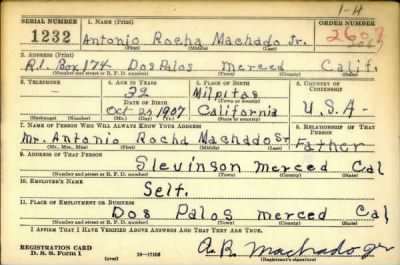 1-H
SERIAL NUMBER 1. NAME (Print) ORDER NUMBER
1232 Antonio Rocha Machado Jr. 2607
(First) (Middle) (Last)
2. ADDRESS (Print)
R.1. Box 174 Dos Palos Merced Calif.
(Number and street or R. F. D. number) (Town) (County) (State)
3. TELEPHONE 4. AGE IN YEARS 5. PLACE OF BIRTH 6. COUNTRY OF CITIZENSHIP
32 Milpitas
DATE OF BIRTH (Town or county)
Oct. 20 1907 California U.S.A-
(Exchange) (Number) (Mo.) (Day) (Yr.) (State or country)
7. NAME OF PERSON WHO WILL ALWAYS KNOW YOUR ADDRESS 8. RELATIONSHIP OF THAT PERSON
Mr. Antonio Rocha Machado Sr Father
(Mr., Mrs., Miss) (First) (Middle) (Last)
9. ADDRESS OF THAT PERSON
Stevinson Merced Cal
(Number and street or R. F. D. number) (Town) (County) (State)
10. EMPLOYER'S NAME
Self.
11. PLACE OF EMPLOYMENT OR BUSINESS
Dos Palos Merced Cal
(Number and street or R. F. D. number) (Town) (County) (State)
I AFFIRM THAT I HAVE VERIFIED ABOVE ANSWERS AND THAT THEY ARE TRUE.
REGISTRATION CARD
D. S. S. Form 1 (over) A. R. Machado Jr
(Registrant's signature)